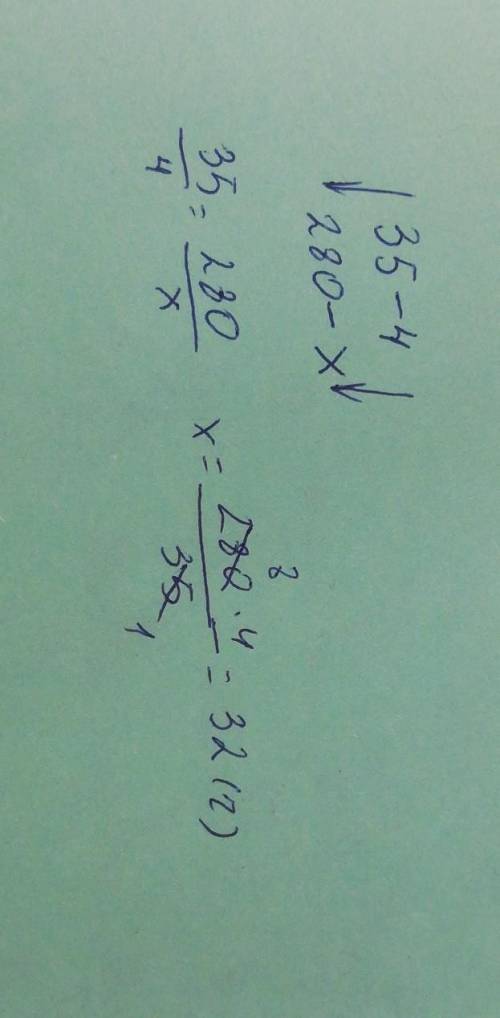 ↓ 35 - 4 ↓
280 - x
35/4 = 280/x x = 280 · 4/35 = 32 (г)
8
1